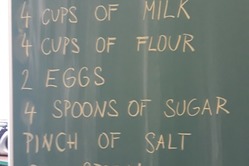 4 CUPS OF MILK
4 CUPS OF FLOUR
2 EGGS
4 SPOONS OF SUGAR
PINCH OF SALT